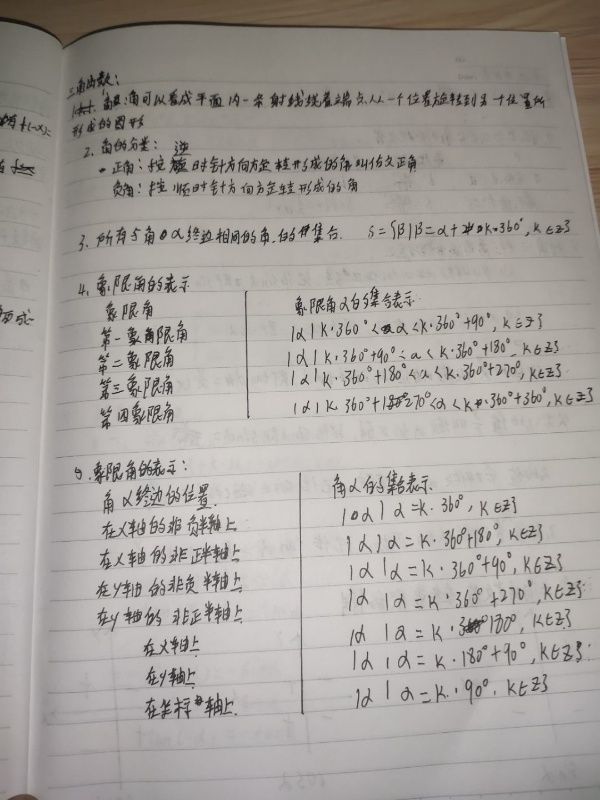 三角函数:
1. 角:角可以看成平面内一条射线绕着端点从一个位置旋转到另一个位置所
形成的图形
2. 角的分类: 逆
正角:按旋时针方向旋转形成的角叫做正角
负角:按顺时针方向旋转形成的角
3. 所有与角α终边相同的角的集合. S={β|β=α+k·360°,k∈Z}
4. 象限角的表示
象限角 象限角α的集合表示
第一象限角 {α|k·360°<α<k·360°+90°, k∈Z}
第二象限角 {α|k·360°+90°<α<k·360°+180°, k∈Z}
第三象限角 {α|k·360°+180°<α<k·360°+270°, k∈Z}
第四象限角 {α|k·360°+270°<α<k·360°+360°, k∈Z}
5. 象限角的表示:
角α终边的位置 角α的集合表示
在x轴的非负半轴上 {α|α=k·360°, k∈Z}
在x轴的非正半轴上 {α|α=k·360°+180°, k∈Z}
在y轴的非负半轴上 {α|α=k·360°+90°, k∈Z}
在y轴的非正半轴上 {α|α=k·360°+270°, k∈Z}
在x轴上 {α|α=k·180°, k∈Z}
在y轴上 {α|α=k·180°+90°, k∈Z}
在坐标轴上 {α|α=k·90°, k∈Z}